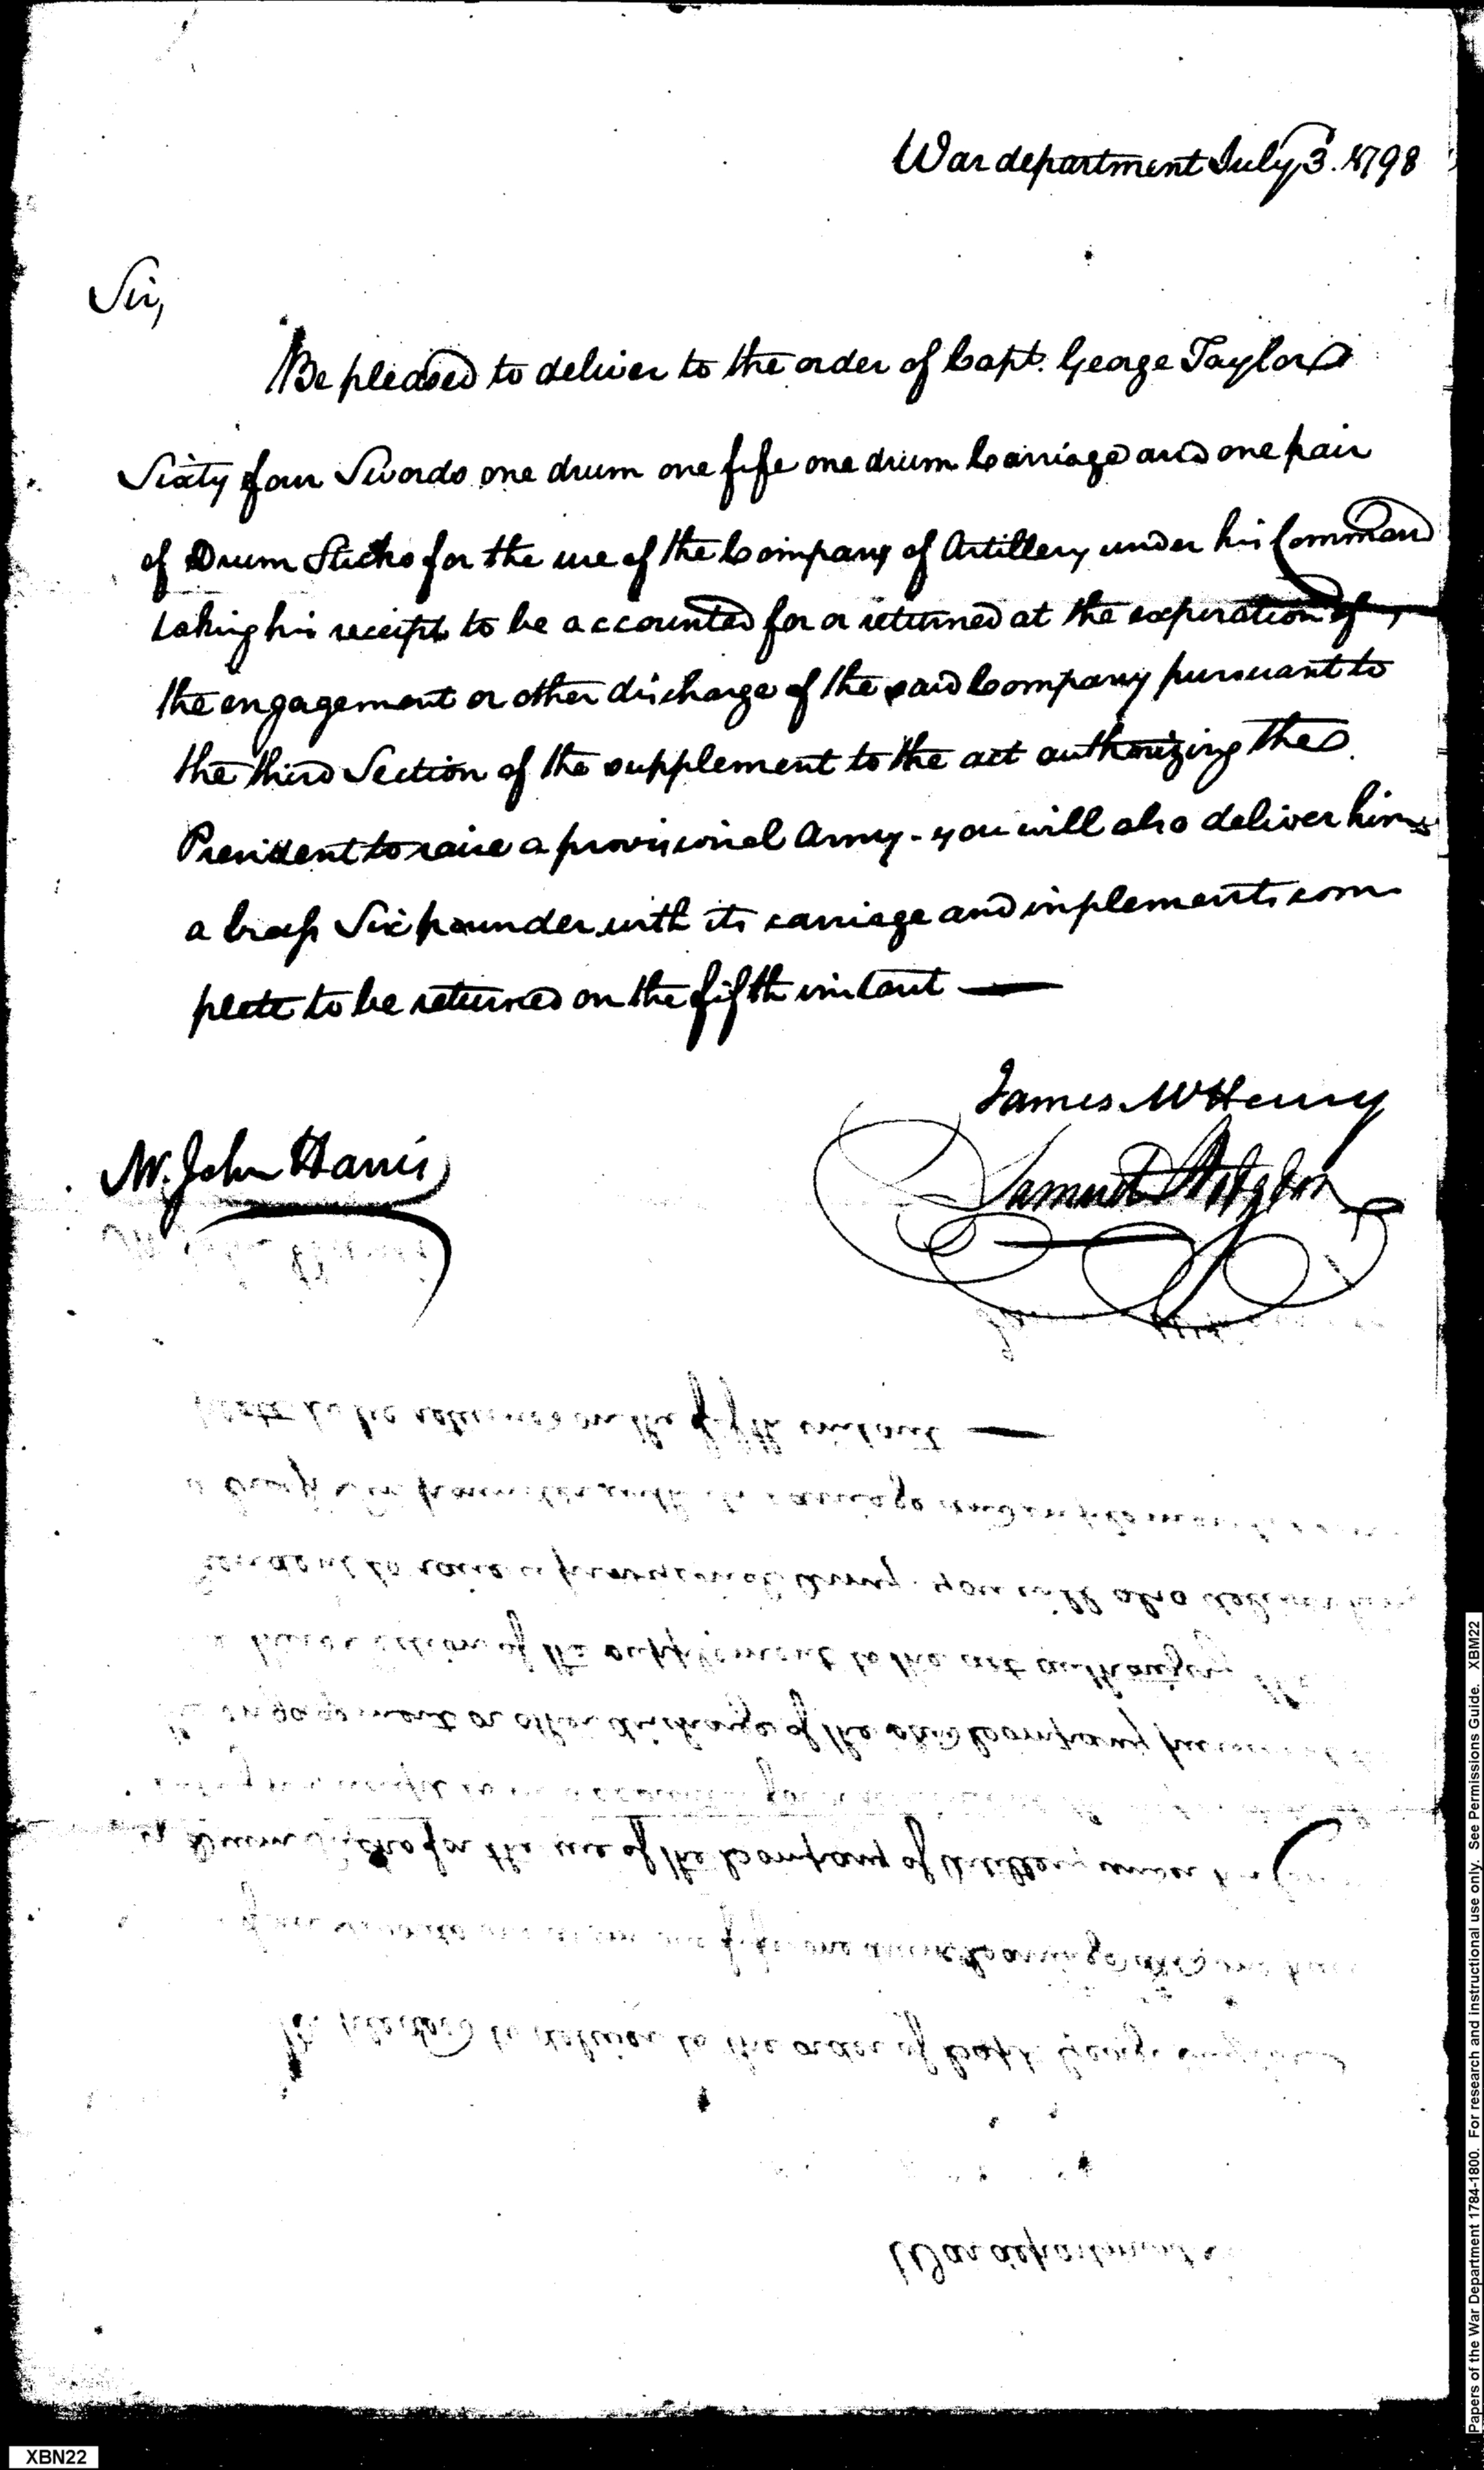 War department July 3. 1798
Sir,
Be pleased to deliver to the order of Capt. George Taylor
Sixty four Swords one drum one fife one drum Carriage and one pair
of Drum Sticks for the use of the Company of Artillery under his Command
taking his receipt to be accounted for or returned at the expiration of
the engagement or other discharge of the said Company pursuant to
the third Section of the supplement to the act authorizing the
President to raise a provisional Army - you will also deliver him
a brass Six pounder with its carriage and implements com
plete to be returned on the fifth instant —
James McHenry
Samuel Hodgdon
Mr. John Harris
Papers of the War Department 1784-1800. For research and instructional use only. See Permissions Guide. XBM22
XBN22